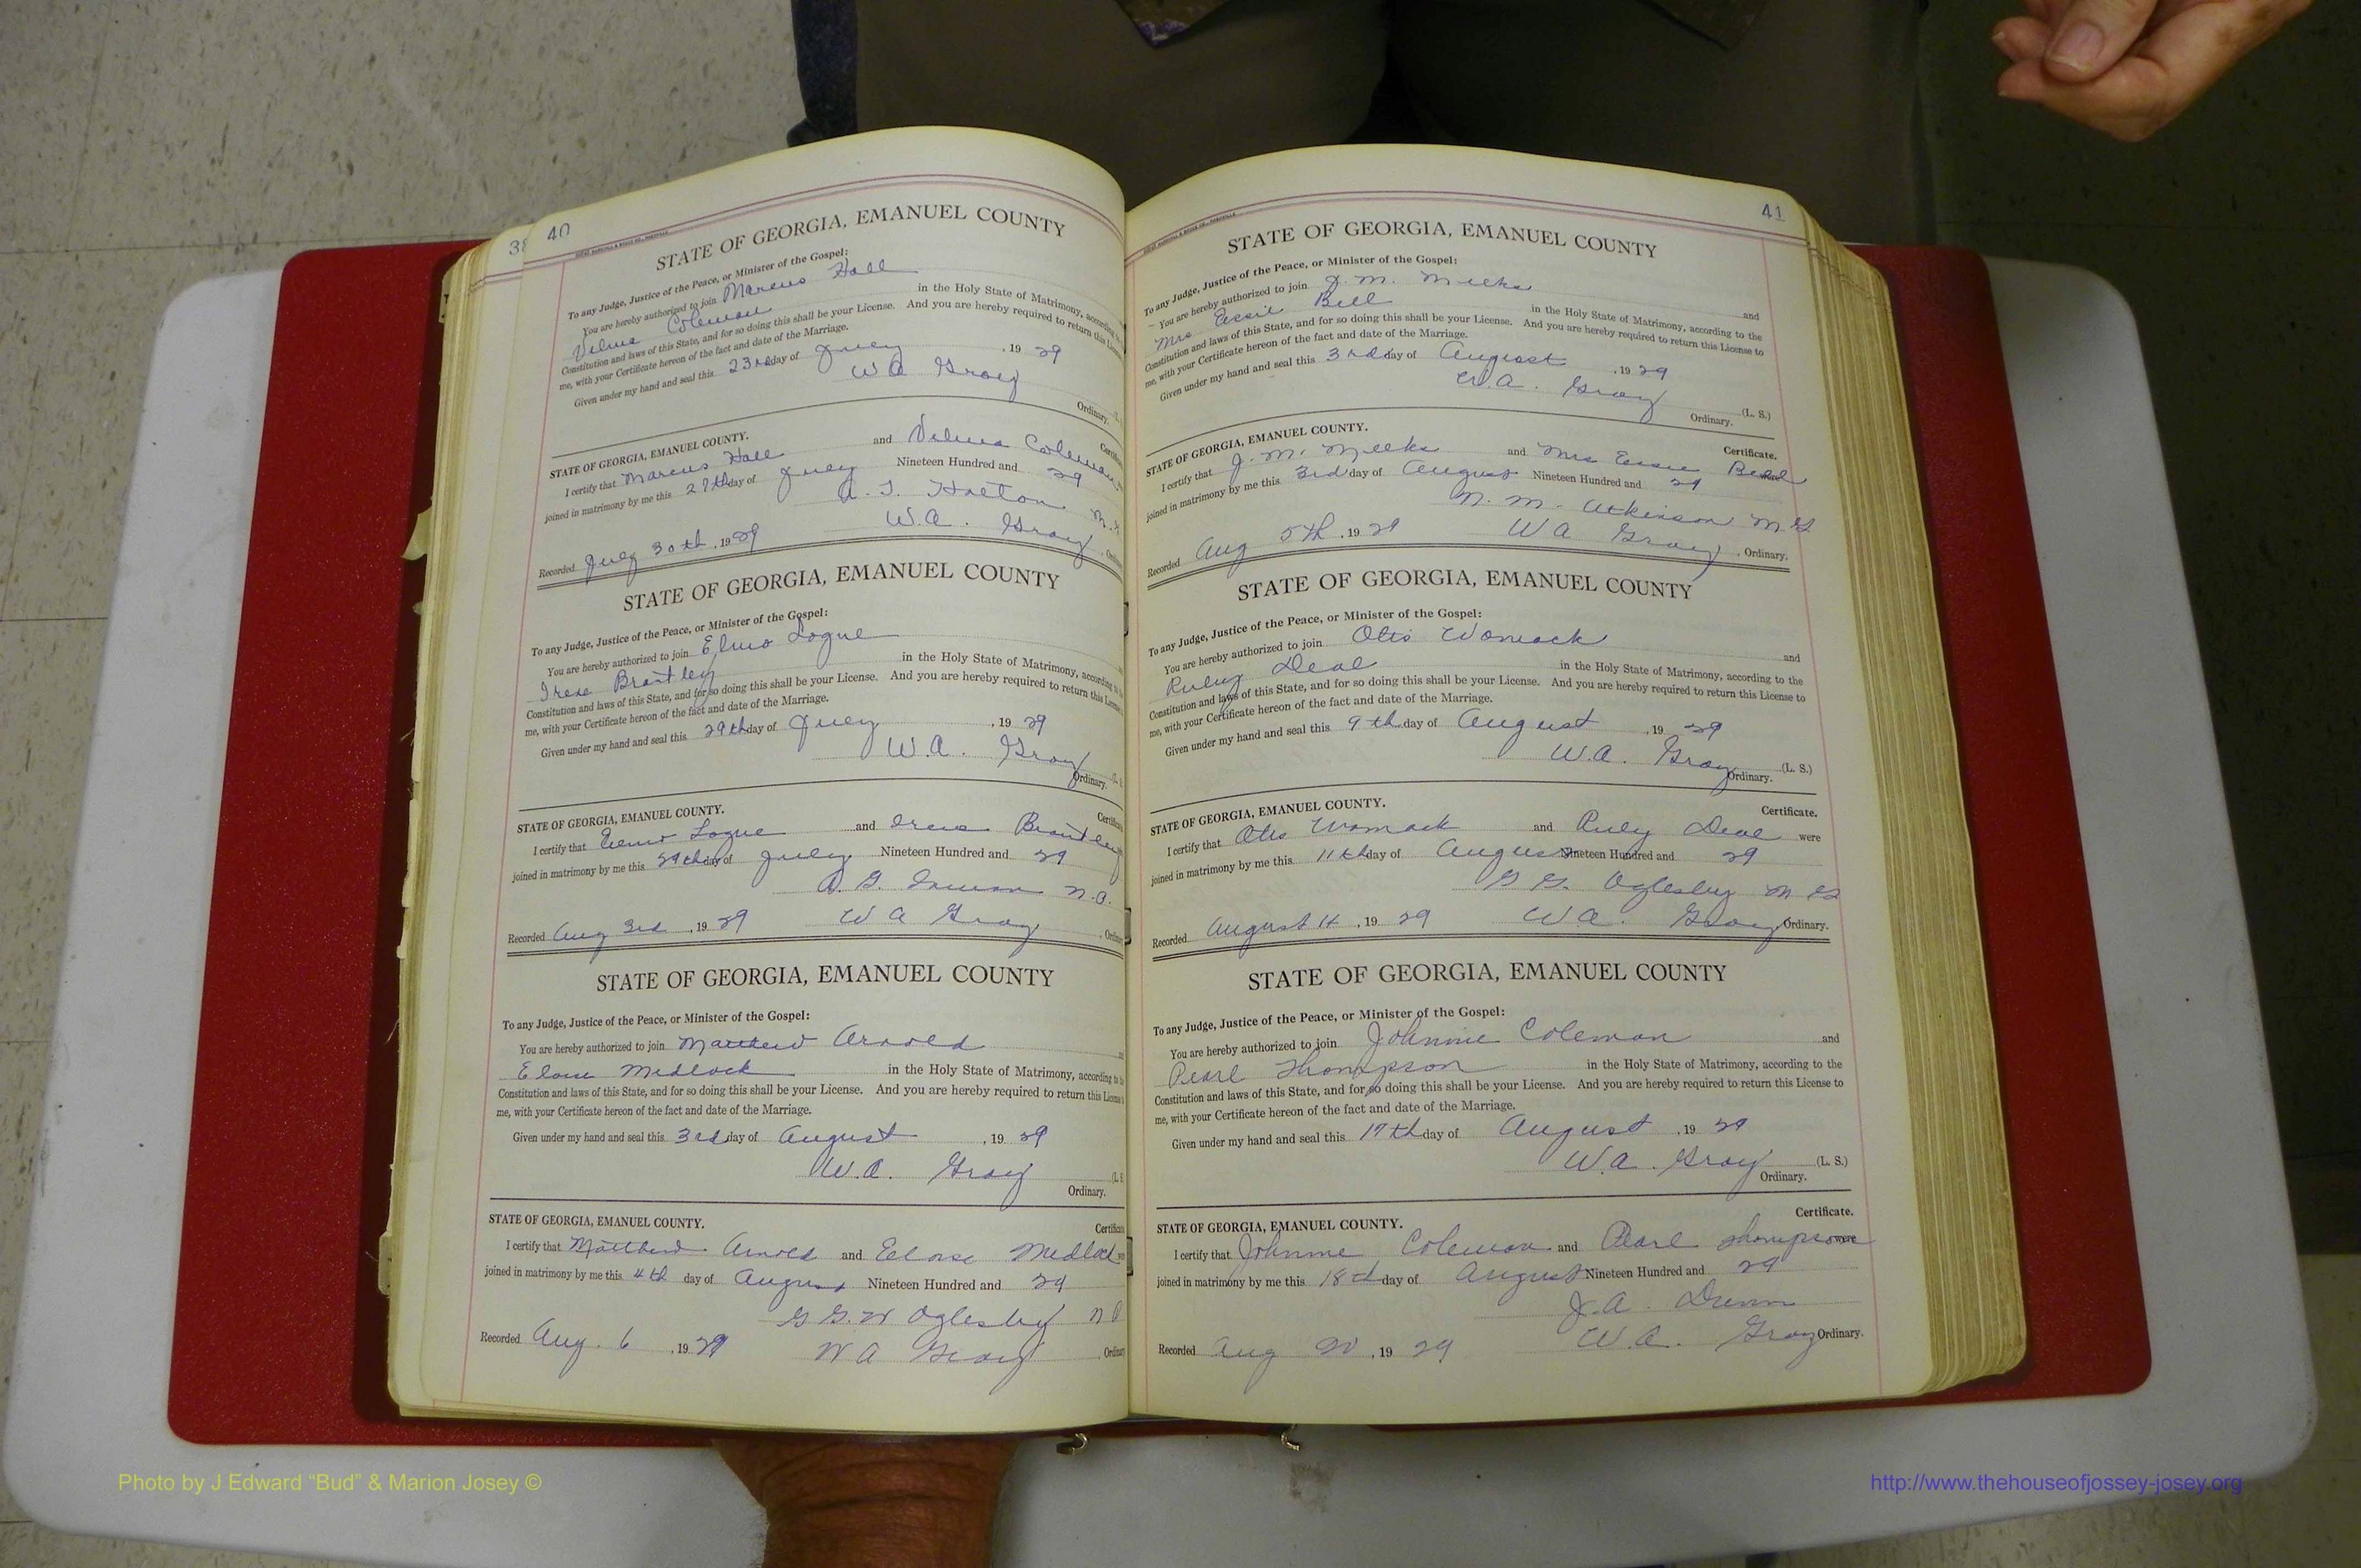 38
40
STATE OF GEORGIA, EMANUEL COUNTY
To any Judge, Justice of the Peace, or Minister of the Gospel:
You are hereby authorized to join Marcus Hall
Velma Coleman in the Holy State of Matrimony, according
Constitution and laws of this State, and for so doing this shall be your License. And you are hereby required to return this
me, with your Certificate hereon of the fact and date of the Marriage.
Given under my hand and seal this 23rd day of July , 19 29
W A Gray
Ordinary.
STATE OF GEORGIA, EMANUEL COUNTY.
I certify that Marcus Hall and Velma Coleman
joined in matrimony by me this 27th day of July Nineteen Hundred and 29
W.A. Gray
Recorded July 30th , 19 29
STATE OF GEORGIA, EMANUEL COUNTY
To any Judge, Justice of the Peace, or Minister of the Gospel:
You are hereby authorized to join Elmo Logue
Irene Brantley in the Holy State of Matrimony, according to
Constitution and laws of this State, and for so doing this shall be your License. And you are hereby required to return this License
me, with your Certificate hereon of the fact and date of the Marriage.
Given under my hand and seal this 29th day of July , 19 29
W.A. Gray
Ordinary.
STATE OF GEORGIA, EMANUEL COUNTY.
I certify that Elmo Logue and Irene Brantley
joined in matrimony by me this 29th day of July Nineteen Hundred and 29
Recorded Aug 3rd , 19 29 W A Gray
STATE OF GEORGIA, EMANUEL COUNTY
To any Judge, Justice of the Peace, or Minister of the Gospel:
You are hereby authorized to join Matthew Arnold
Eloise Medlock in the Holy State of Matrimony, according to
Constitution and laws of this State, and for so doing this shall be your License. And you are hereby required to return this License
me, with your Certificate hereon of the fact and date of the Marriage.
Given under my hand and seal this 3rd day of August , 19 29
W.A. Gray
Ordinary.
STATE OF GEORGIA, EMANUEL COUNTY.
I certify that Matthew Arnold and Eloise Medlock
joined in matrimony by me this 4th day of August Nineteen Hundred and 29
G G. W Oglesby
Recorded Aug. 6 , 19 29 W A Gray
41
STATE OF GEORGIA, EMANUEL COUNTY
To any Judge, Justice of the Peace, or Minister of the Gospel:
You are hereby authorized to join J. M. Meeks and
Mrs Essie Bell in the Holy State of Matrimony, according to the
Constitution and laws of this State, and for so doing this shall be your License. And you are hereby required to return this License to
me, with your Certificate hereon of the fact and date of the Marriage.
Given under my hand and seal this 3rd day of August , 19 29
W.A. Gray (L. S.)
Ordinary.
STATE OF GEORGIA, EMANUEL COUNTY. Certificate.
I certify that J. M. Meeks and Mrs Essie Bell were
joined in matrimony by me this 3rd day of August Nineteen Hundred and 29
N. M. Atkinson M G
Recorded Aug 5th , 19 29 W A Gray , Ordinary.
STATE OF GEORGIA, EMANUEL COUNTY
To any Judge, Justice of the Peace, or Minister of the Gospel:
You are hereby authorized to join Otis Womack and
Ruby Deal in the Holy State of Matrimony, according to the
Constitution and laws of this State, and for so doing this shall be your License. And you are hereby required to return this License to
me, with your Certificate hereon of the fact and date of the Marriage.
Given under my hand and seal this 9th day of August , 19 29
W.A. Gray (L. S.)
Ordinary.
STATE OF GEORGIA, EMANUEL COUNTY. Certificate.
I certify that Otis Womack and Ruby Deal were
joined in matrimony by me this 11th day of August Nineteen Hundred and 29
G G. Oglesby M G
Recorded August 14 , 19 29 W A. Gray Ordinary.
STATE OF GEORGIA, EMANUEL COUNTY
To any Judge, Justice of the Peace, or Minister of the Gospel:
You are hereby authorized to join Johnnie Coleman and
Pearl Thompson in the Holy State of Matrimony, according to the
Constitution and laws of this State, and for so doing this shall be your License. And you are hereby required to return this License to
me, with your Certificate hereon of the fact and date of the Marriage.
Given under my hand and seal this 17th day of August , 19 29
W.A. Gray (L. S.)
Ordinary.
STATE OF GEORGIA, EMANUEL COUNTY. Certificate.
I certify that Johnnie Coleman and Pearl Thompson were
joined in matrimony by me this 18th day of August Nineteen Hundred and 29
J.A. Dunn
W.A. Gray Ordinary.
Recorded Aug 20 , 19 29
Photo by J Edward “Bud” & Marion Josey ©
http://www.thehouseofjossey-josey.org